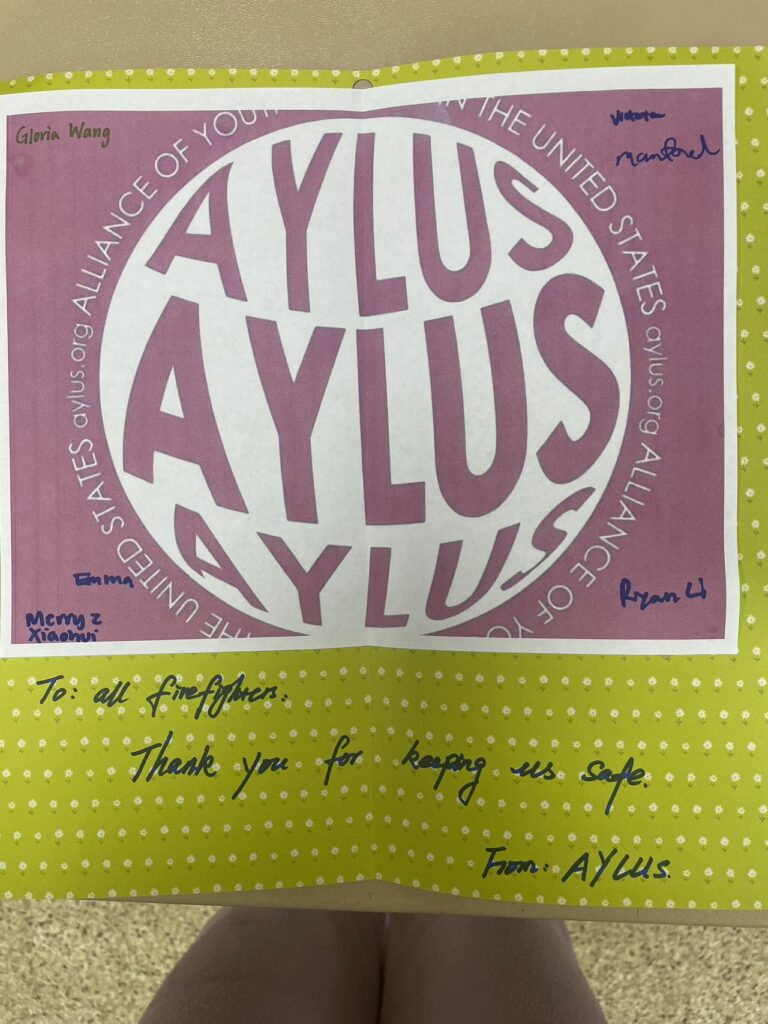 Gloria Wang
Victoria
Manford
ALLIANCE OF YOUTH IN THE UNITED STATES aylus.org ALLIANCE OF YO
THE UNITED STATES aylus.org
AYLUS
AYLUS
AYLUS
Emma
Merry z
Xiaohui
Ryan Li
To: all firefighters:
Thank you for keeping us safe.
From: AYLUS.